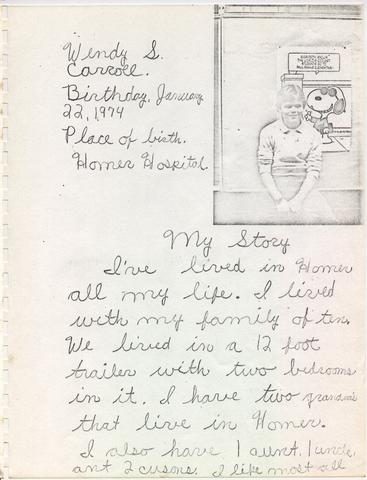 Wendy S.
Carroll.
Birthday, January
22, 1974
Place of birth.
Homer Hospital.
My Story
I've lived in Homer
all my life. I lived
with my family of ten.
We lived in a 12 foot
trailer with two bedrooms
in it. I have two grandma's
that live in Homer.
I also have 1 aunt, 1 uncle,
ant 2 cusons. I like most all